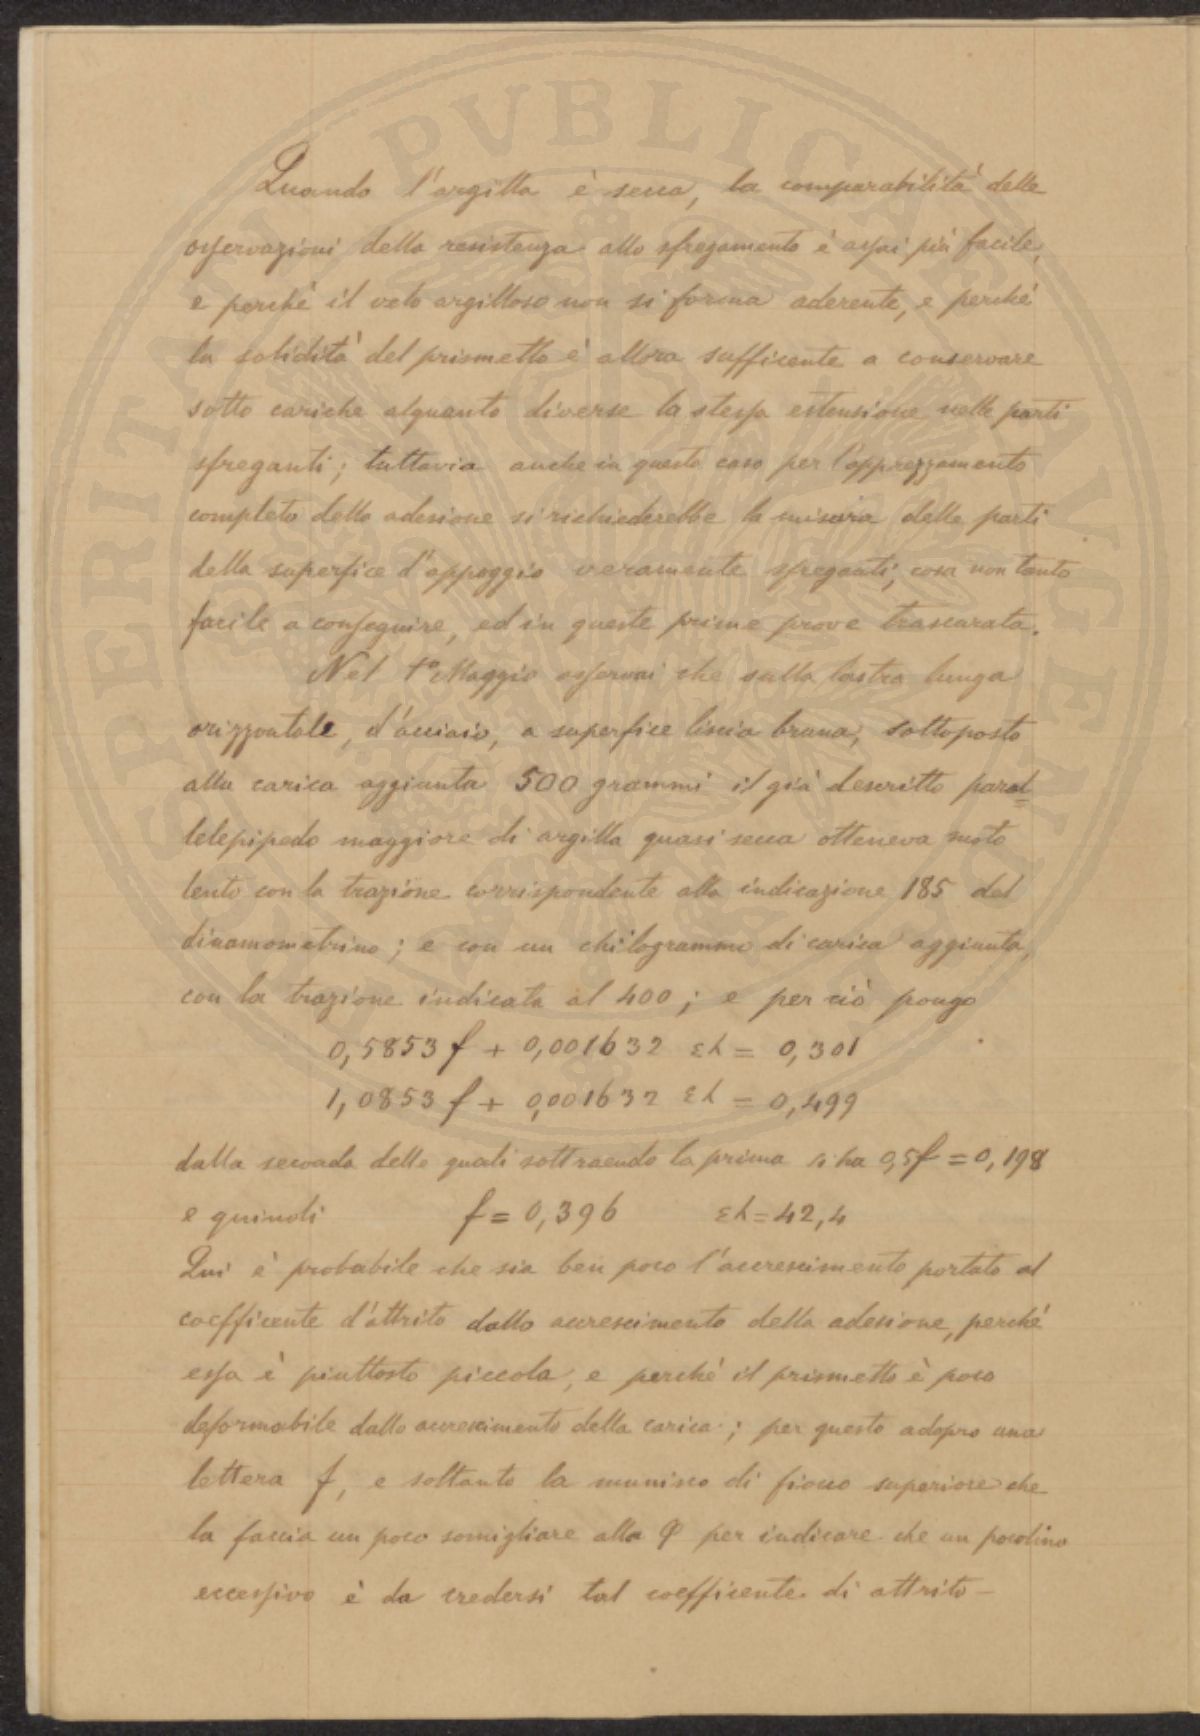 Quando l'argilla è secca, la comparabilità delle
osservazioni della resistenza allo sfregamento è assai più facile,
e perché il velo argilloso non si forma aderente, e perché
la solidità del prismetto è allora sufficente a conservare
sotto cariche alquanto diverse la stessa estensione nelle parti
sfreganti; tuttavia anche in questo caso per l'apprezzamento
completo della adesione si richiederebbe la misura delle parti
della superfice d'appoggio veramente sfreganti, cosa non tanto
facile a conseguire, ed in queste prime prove trascurata.
Nel 1° Maggio osservai che sulla lastra lunga
orizzontale, d'acciaio, a superfice liscia bruna, sottoposto
alla carica aggiunta 500 grammi il già descritto paral=
lelepipedo maggiore di argilla quasi secca otteneva moto
lento con la trazione corrispondente alla indicazione 185 del
dinamometrino; e con un chilogrammo di carica aggiunta,
con la trazione indicata al 400; e per ciò pongo
0,5853 f + 0,001632 εh = 0,301
1,0853 f + 0,001632 εh = 0,499
dalla seconda delle quali sottraendo la prima si ha 0,5f = 0,198
e quindi f = 0,396 εh = 42,4
Qui è probabile che sia ben poco l'accrescimento portato al
coefficente d'attrito dallo accrescimento della adesione, perché
essa è piuttosto piccola, e perché il prismetto è poco
deformabile dallo accrescimento della carica; per questo adopro una
lettera f, e soltanto la munisco di fiocco superiore che
la faccia un poco somigliare alla φ per indicare che un pocolino
eccessivo è da credersi tal coefficente di attrito —
PERITAT PVBLICAE AVGENDAE